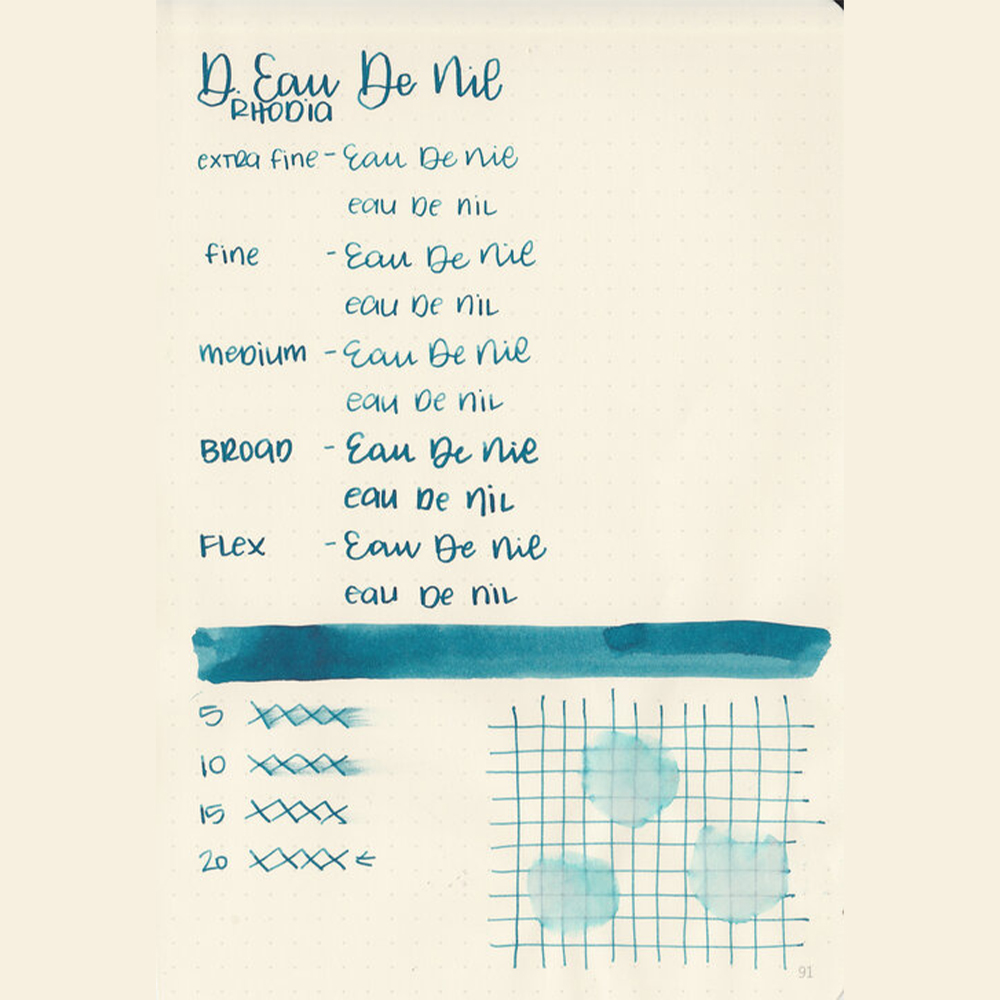 D. Eau De Nil
RHODIA
extra fine - Eau De Nil
eau De nil
fine - Eau De Nil
eau De nil
medium - Eau De Nil
eau De nil
BROAD - Eau De Nil
eau De nil
FLex - Eau De Nil
eau De nil
5 XXXX
10 XXXX
15 XXXX
20 XXXX ←
91